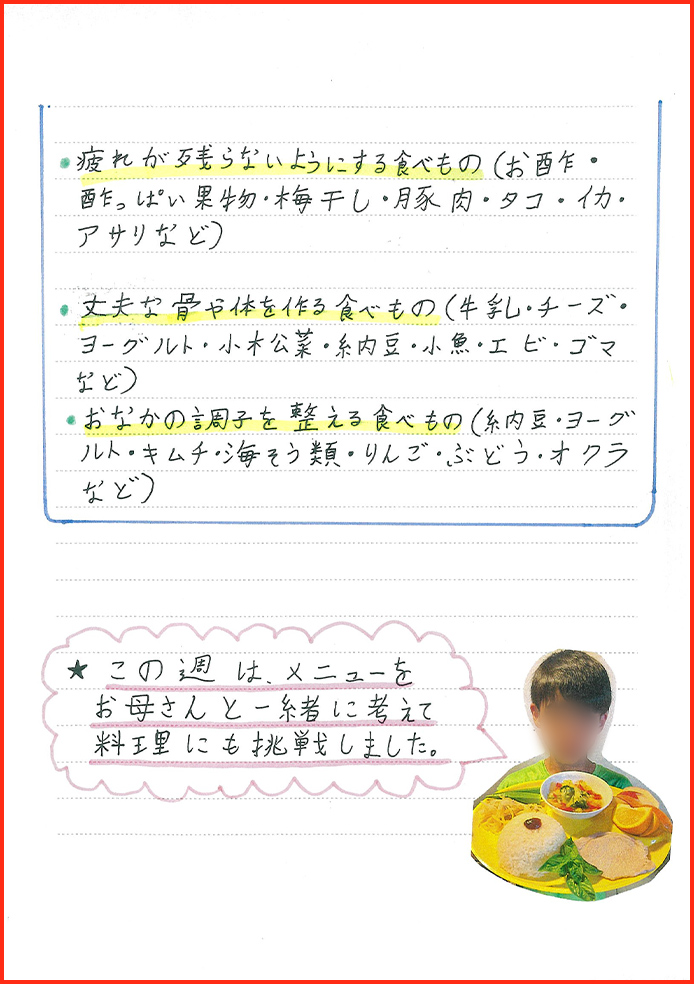 • 疲れが残らないようにする食べもの(お酢・
酢っぱい果物・梅干し・豚肉・タコ・イカ・
アサリなど)
• 丈夫な骨や体を作る食べもの(牛乳・チーズ・
ヨーグルト・小松菜・納豆・小魚・エビ・ゴマ
など)
• おなかの調子を整える食べもの(納豆・ヨーグ
ルト・キムチ・海そう類・りんご・ぶどう・オクラ
など)
★ この週は、メニューを
お母さんと一緒に考えて
料理にも挑戦しました。